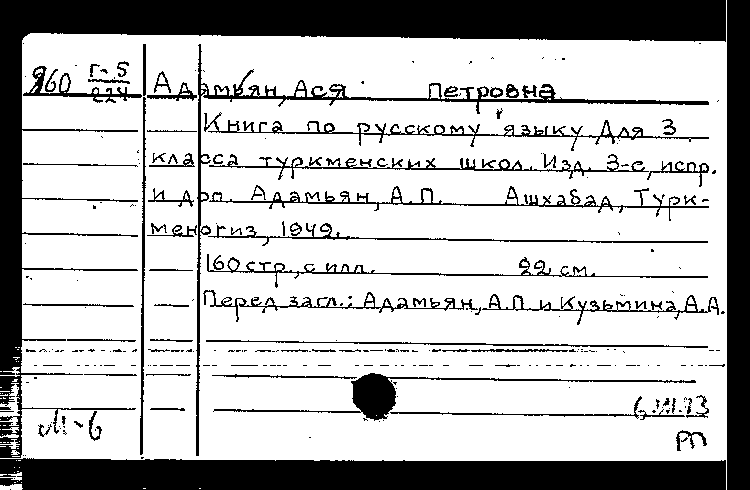 Г-5
960 224 Адамьян, Ася Петровна
Книга по русскому языку для 3
класса туркменских школ. Изд. 3-е, испр.
и доп. Адамьян, А.П. Ашхабад, Турк-
меногиз, 1949.
160 стр., с илл. 22 см.
Перед загл.: Адамьян, А.П. и Кузьмина, А.А.
М-6
РП